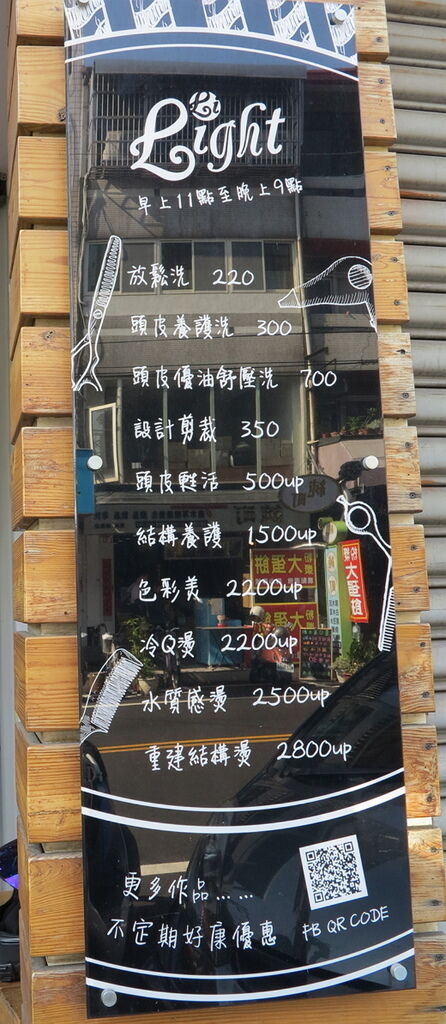 Li
Light
早上11點至晚上9點
放鬆洗 220
頭皮養護洗 300
頭皮優油舒壓洗 700
設計剪裁 350
頭皮甦活 500up
結構養護 1500up
色彩美 2200up
冷Q燙 2200up
水質感燙 2500up
重建結構燙 2800up
更多作品......
不定期好康優惠
FB QR CODE